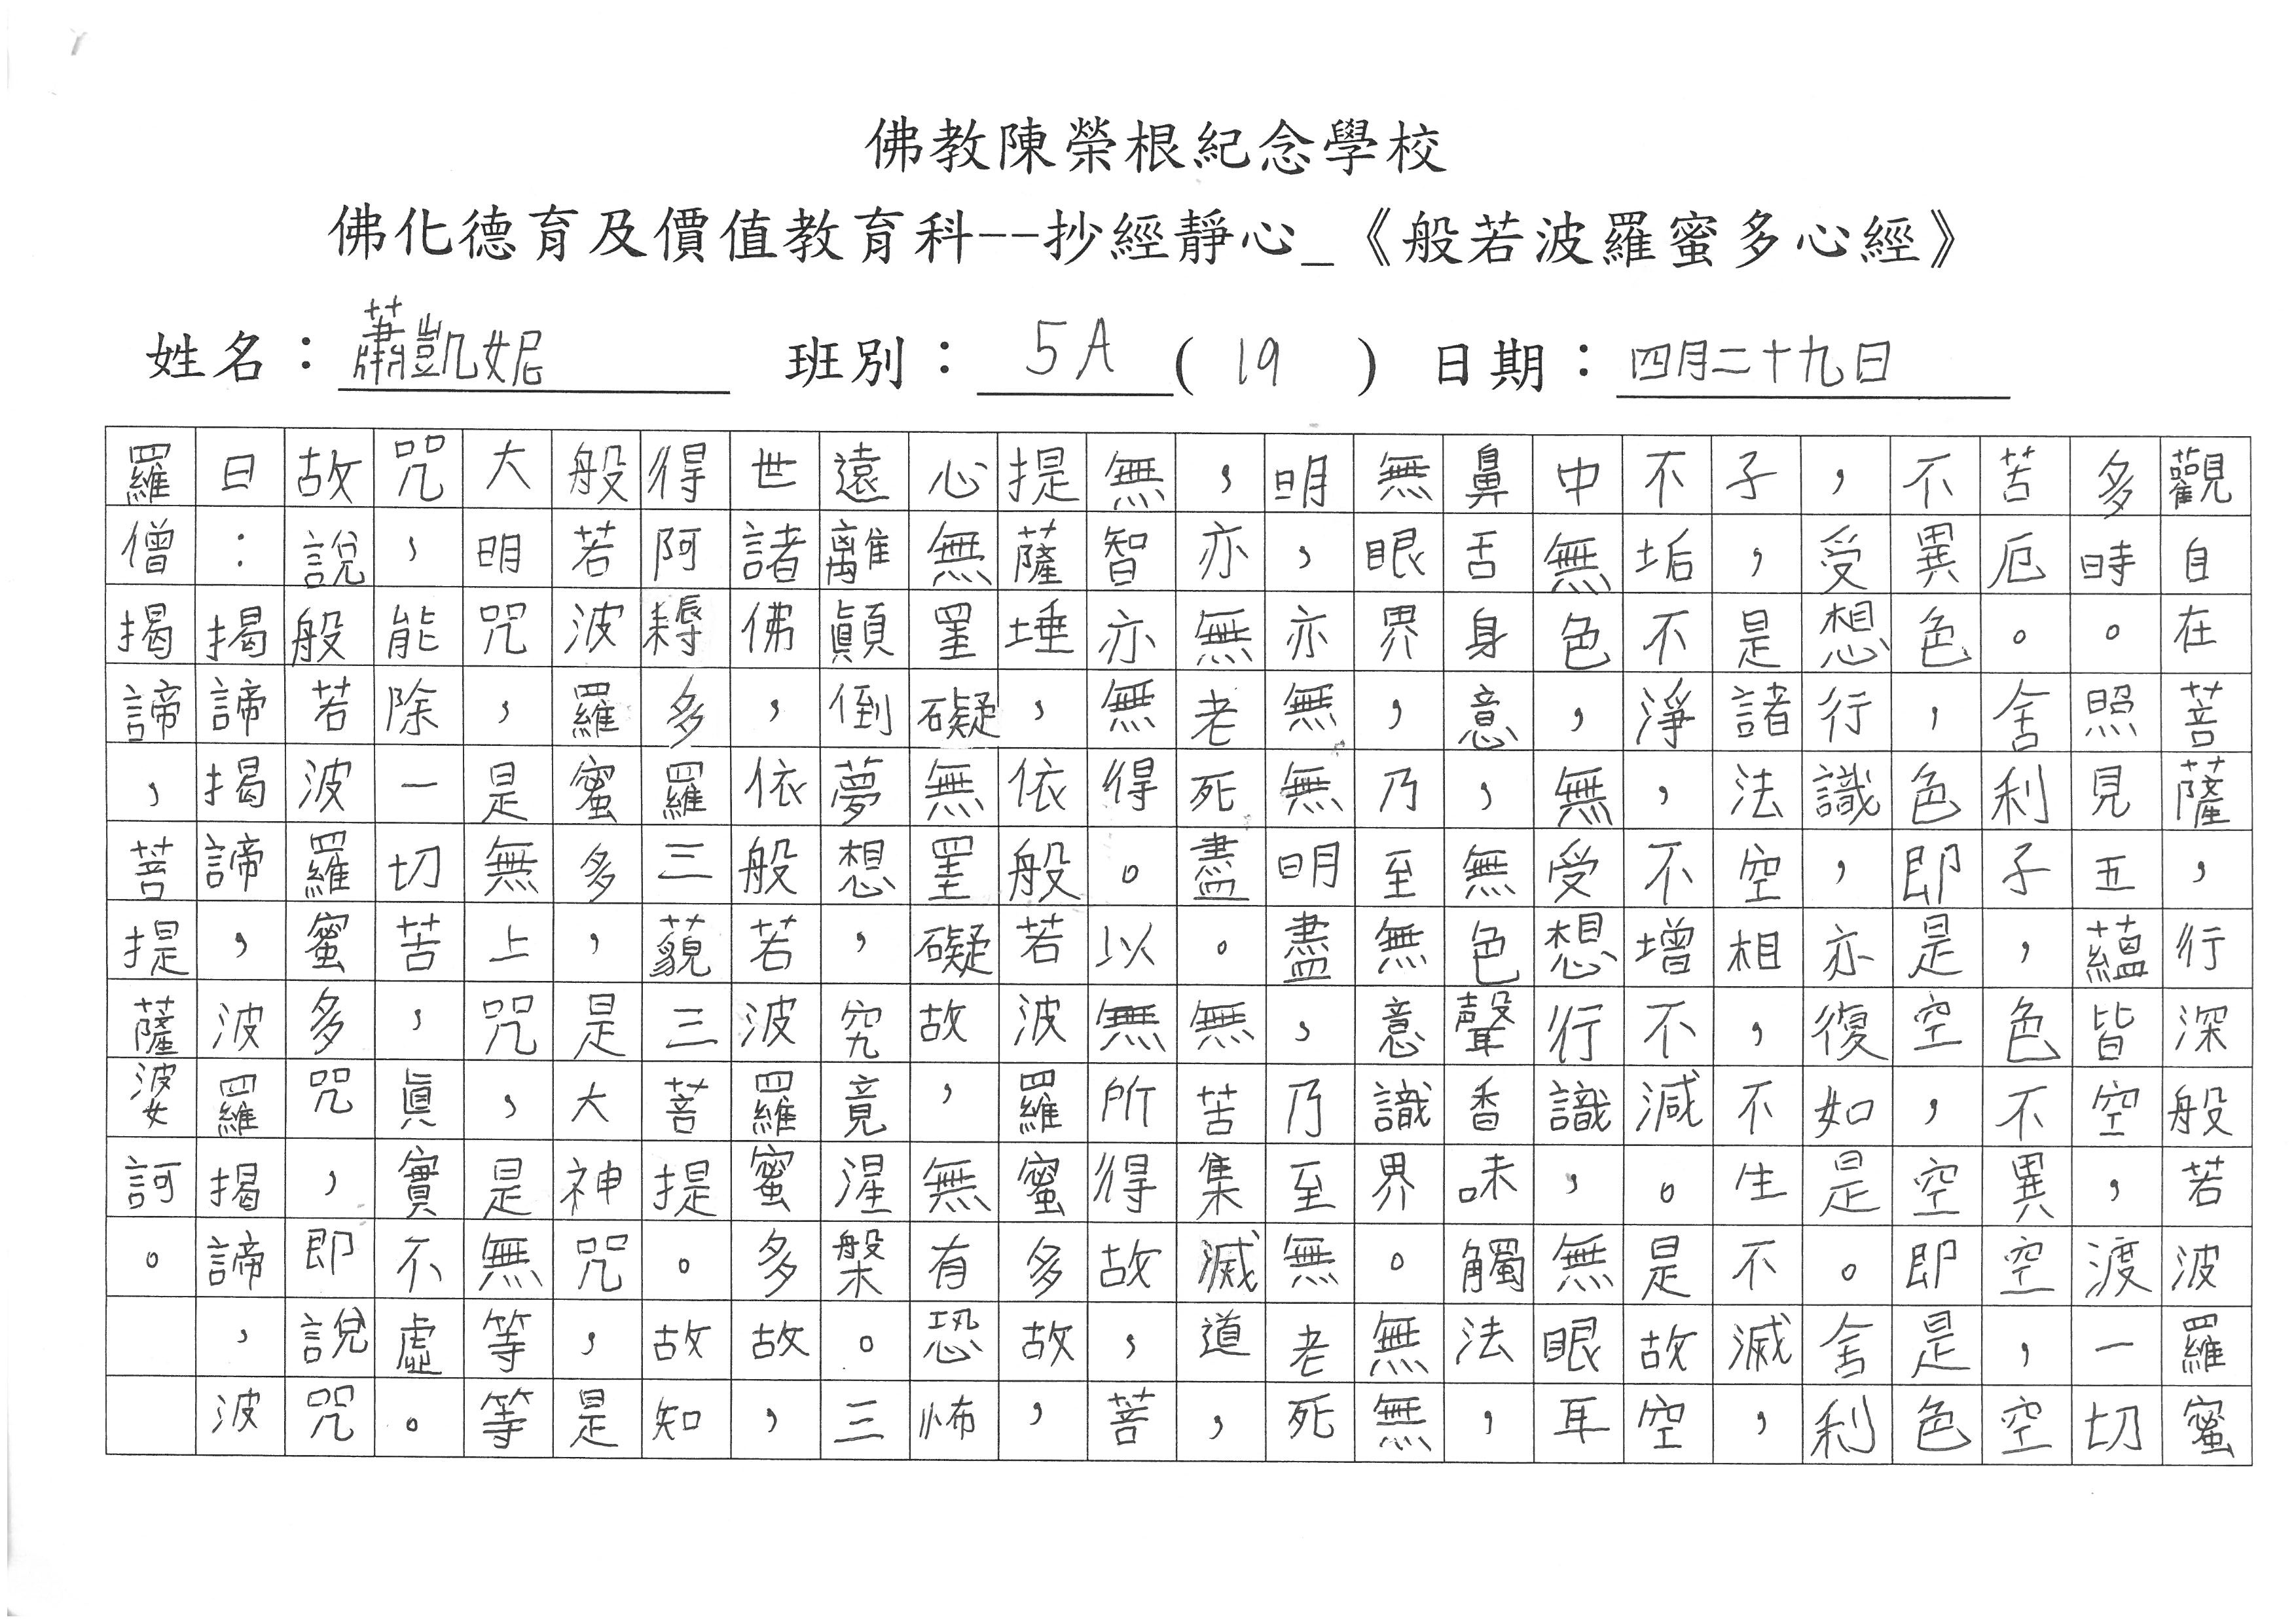 佛教陳榮根紀念學校
佛化德育及價值教育科--抄經靜心_《般若波羅蜜多心經》
姓名：蕭凱妮 班別：5A(19) 日期：四月二十九日
觀自在菩薩，行深般若波羅蜜
多時。照見五蘊皆空，渡一切
苦厄。舍利子，色不異空，空
不異色，色即是空，空即是色
，受想行識，亦復如是。舍利
子，是諸法空相，不生不滅，
不垢不淨，不增不減。是故空
中無色，無受想行識，無眼耳
鼻舌身意，無色聲香味觸法，
無眼界，乃至無意識界。無無
明，亦無無明盡，乃至無老死
，亦無老死盡。無苦集滅道，
無智亦無得。以無所得故，菩
提薩埵，依般若波羅蜜多故，
心無罣礙無罣礙故，無有恐怖
遠離顚倒夢想，究竟涅槃。三
世諸佛，依般若波羅蜜多故，
得阿耨多羅三藐三菩提。故知
般若波羅蜜多，是大神咒，是
大明咒，是無上咒，是無等等
咒，能除一切苦，眞實不虛。
故說般若波羅蜜多咒，即說咒
曰：揭諦揭諦，波羅揭諦，波
羅僧揭諦，菩提薩婆訶。